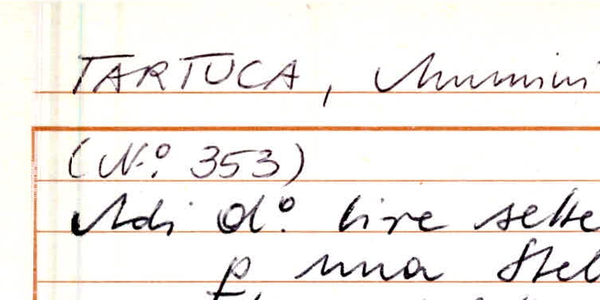 TARTUCA,
(N.º 353)
Adi d.º lire sette
p. una Stel